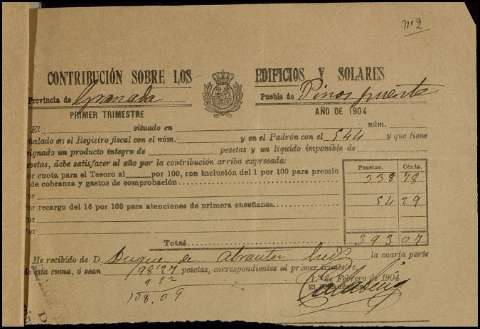 nº 2
CONTRIBUCIÓN SOBRE LOS EDIFICIOS Y SOLARES
Provincia de Granada Pueblo de Pinos puente
PRIMER TRIMESTRE AÑO DE 1904
El situado en núm.
señalado en el Registro fiscal con el núm. y en el Padrón con el 544 y que tiene
asignado un producto íntegro de pesetas y un líquido imponible de
pesetas, debe satisfacer al año por la contribución arriba expresada:
por cuota para el Tesoro al por 100, con inclusión del 1 por 100 para premio
de cobranza y gastos de comprobación
Pesetas. Cénts.
338 78
por
por recargo del 16 por 100 para atenciones de primera enseñanza 54 29
por
Total 393 07
He recibido de D. Duque de Abrantes la cuarta parte
de esta suma, ó sean 98'27 pesetas, correspondientes al primer trimestre
de Febrero de 1904
108.09